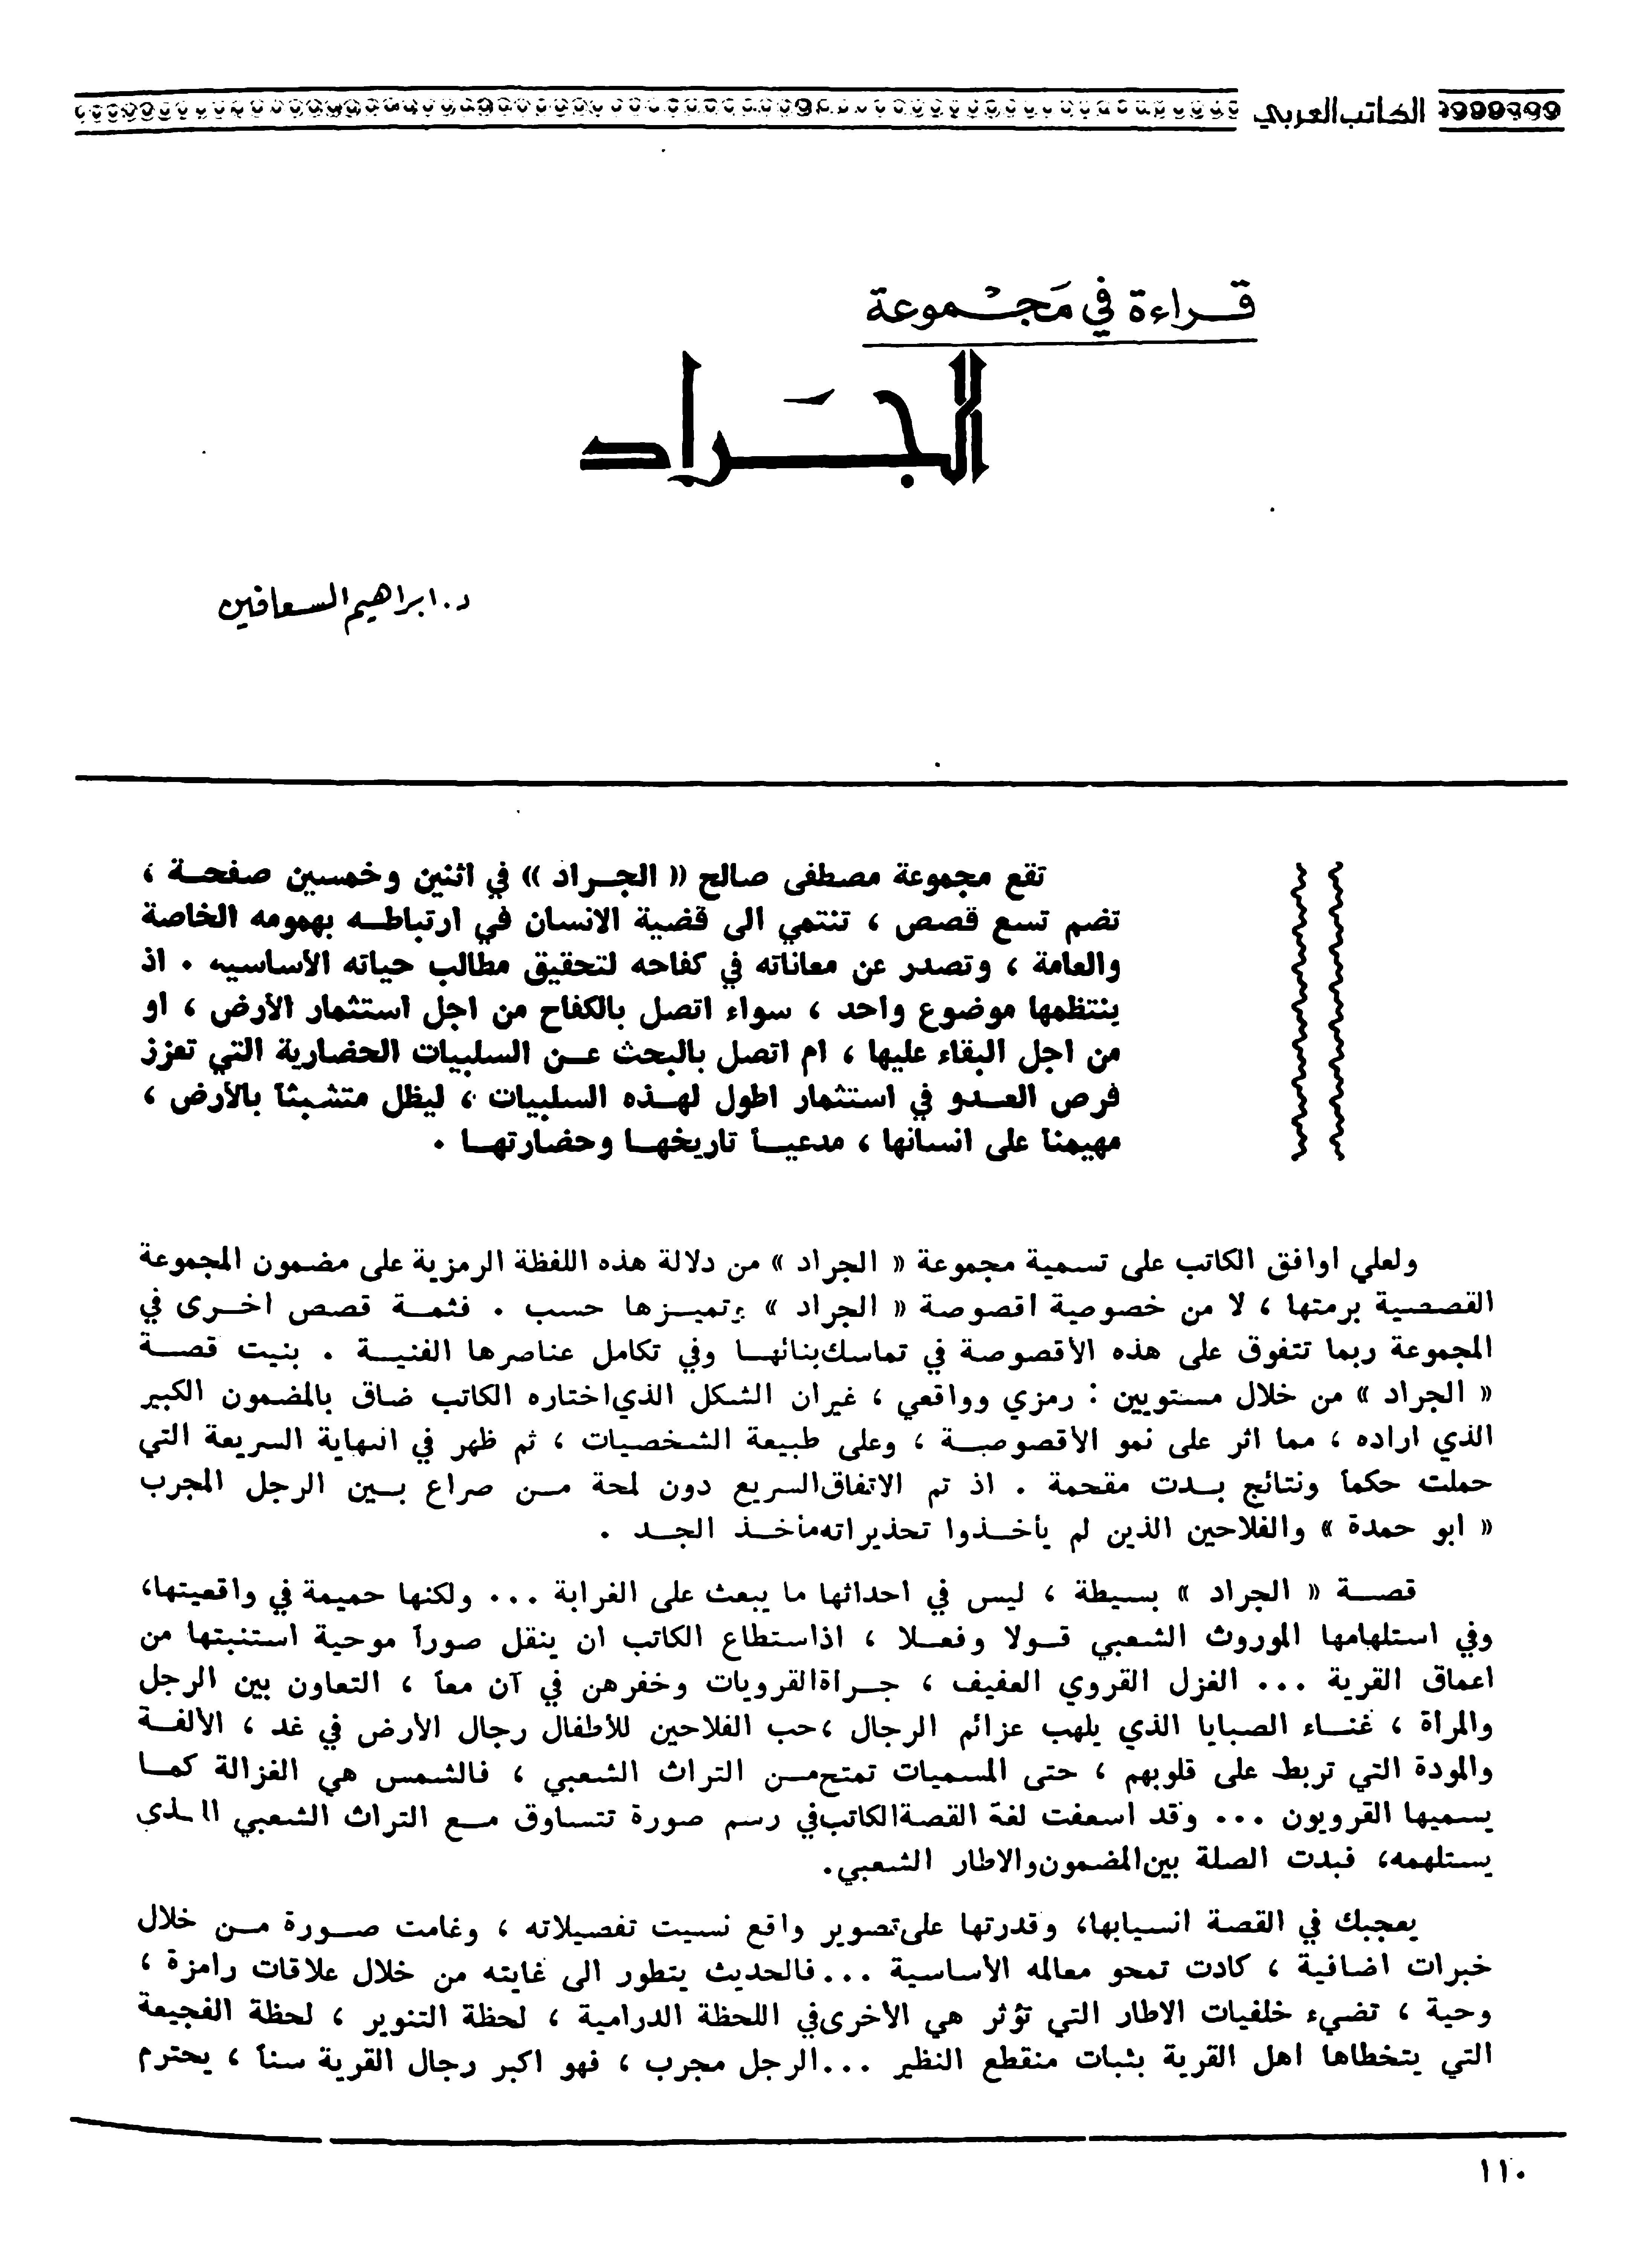 الكاتب العربي
قراءة في مَجْموعة
الجَراد
د. ابراهيم السعافين
تقع مجموعة مصطفى صالح « الجراد » في اثنين وخمسين صفحة ،
تضم تسع قصص ، تنتمي الى قضية الانسان في ارتباطه بهمومه الخاصة
والعامة ، وتصدر عن معاناته في كفاحه لتحقيق مطالب حياته الأساسيه . اذ
ينتظمها موضوع واحد ، سواء اتصل بالكفاح من اجل استثمار الأرض ، او
من اجل البقاء عليها ، ام اتصل بالبحث عن السلبيات الحضارية التي تعزز
فرص العدو في استثمار اطول لهذه السلبيات ، ليظل متشبثاً بالأرض ،
مهيمناً على انسانها ، مدعياً تاريخها وحضارتها .
ولعلي اوافق الكاتب على تسمية مجموعة « الجراد » من دلالة هذه اللفظة الرمزية على مضمون المجموعة
القصصية برمتها ، لا من خصوصية اقصوصة « الجراد » وتميزها حسب . فثمة قصص اخرى في
المجموعة ربما تتفوق على هذه الأقصوصة في تماسك بنائها وفي تكامل عناصرها الفنية . بنيت قصة
« الجراد » من خلال مستويين : رمزي وواقعي ، غير ان الشكل الذي اختاره الكاتب ضاق بالمضمون الكبير
الذي اراده ، مما اثر على نمو الأقصوصة ، وعلى طبيعة الشخصيات ، ثم ظهر في النهاية السريعة التي
حملت حكماً ونتائج بدت مقحمة . اذ تم الاتفاق السريع دون لمحة من صراع بين الرجل المجرب
« ابو حمدة » والفلاحين الذين لم يأخذوا تحذيراته مأخذ الجد .
قصة « الجراد » بسيطة ، ليس في احداثها ما يبعث على الغرابة ... ولكنها حميمة في واقعيتها،
وفي استلهامها الموروث الشعبي قولا وفعلا ، اذ استطاع الكاتب ان ينقل صوراً موحية استنبتها من
اعماق القرية ... الغزل القروي العفيف ، جراة القرويات وخفرهن في آن معاً ، التعاون بين الرجل
والمرأة ، غناء الصبايا الذي يلهب عزائم الرجال ، حب الفلاحين للأطفال رجال الأرض في غد ، الألفة
والمودة التي تربط على قلوبهم ، حتى المسميات تمتح من التراث الشعبي ، فالشمس هي الغزالة كما
يسميها القرويون ... وقد اسعفت لغة القصة الكاتب في رسم صورة تتساوق مع التراث الشعبي الذي
يستلهمه، فبدت الصلة بين المضمون والاطار الشعبي.
يعجبك في القصة انسيابها، وقدرتها على تصوير واقع نسيت تفصيلاته ، وغامت صورة من خلال
خبرات اضافية ، كادت تمحو معالمه الأساسية ... فالحديث يتطور الى غايته من خلال علاقات رامزة ،
وحية ، تضيء خلفيات الاطار التي تؤثر هي الأخرى في اللحظة الدرامية ، لحظة التنوير ، لحظة الفجيعة
التي يتخطاها اهل القرية بثبات منقطع النظير ... الرجل مجرب ، فهو اكبر رجال القرية سناً ، يحترم
١١٠